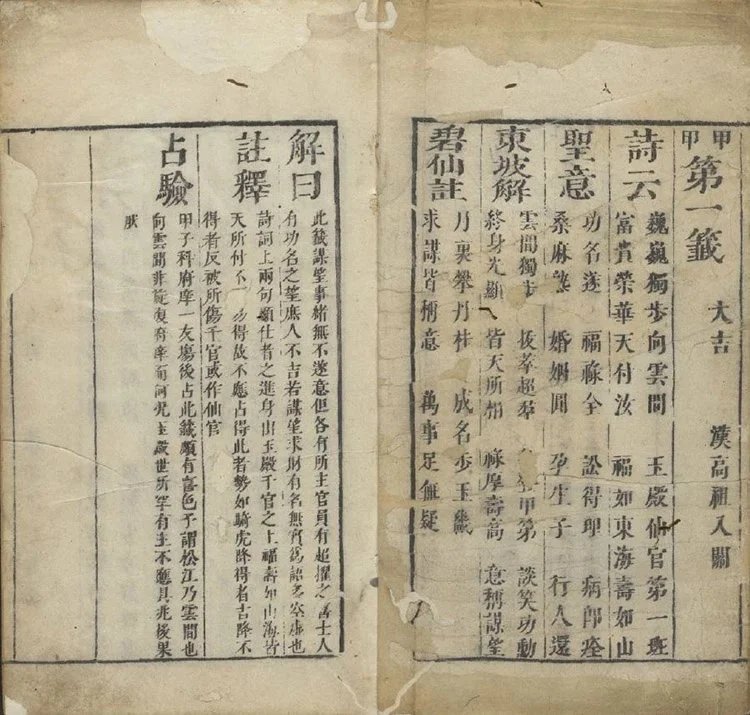 甲甲 第一籤 大吉 漢高祖入關
詩云 巍巍獨步向雲間 玉殿仙官第一班
富貴榮華天付汝 福如東海壽如山
聖意 功名遂 福祿全 訟得理 病即痊
桑麻熟 婚姻圓 孕生子 行人還
東坡解 雲間獨步 拔萃超群 甲第 談笑功動
終身光顯 皆天所相 祿厚壽高 意稱謀望
碧仙註 丹裏攀丹桂 成名步玉畿
求謀皆稱意 萬事足無疑
解曰 此籤謀望事緒無不遂意但各有所主官員有超擢之喜士人
有功名之望庶人不吉若謀望求財有名無實為語多空虛也
註釋 詩詞上兩句顯仕者之進身出玉殿千官之上福壽如山海皆
天所付不一 得故不應占得此者勢如騎虎降得者吉降不
得者反被所傷千官或作仙官
占驗 甲子科府庠一友場後占此籤頗有喜色予謂松江乃雲間也
向雲間非旋復府庠而何況玉殿世所罕有主不應具兆後果
狀